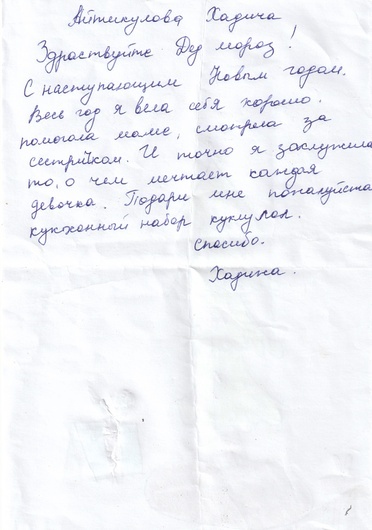 Айтикулова Хадича
Здраствуйте Дед мороз!
С наступающим Новым годом.
Весь год я вела себя хорошо.
помогала маме, смотрела за
сестрийкой. И точно я заслужила
то, о чем мечтает каждая
девочка. Подари мне пожалуйста
кукхонный набор
спасибо.
Хадича.